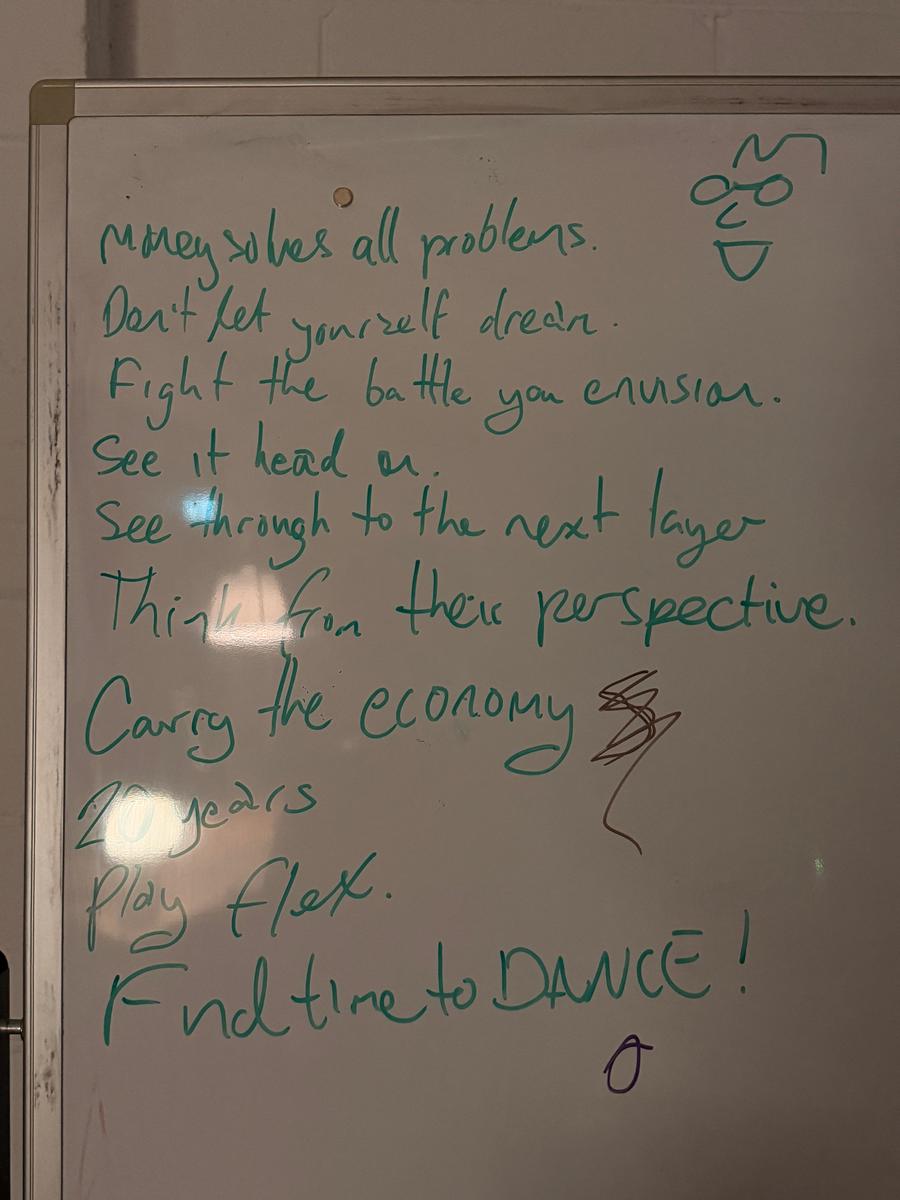 Money solves all problems.
Don't let yourself dream.
Fight the battle you envision.
See it head on.
See through to the next layer
Think from their perspective.
Carry the economy
20 years
Play flex.
Find time to DANCE!